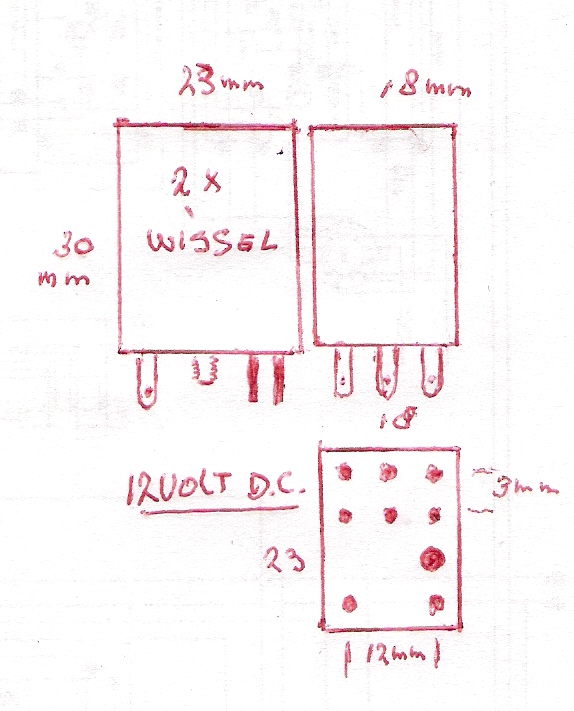 23mm
18mm
2 x
WISSEL
30
mm
18
12VOLT D.C.
3mm
23
12mm